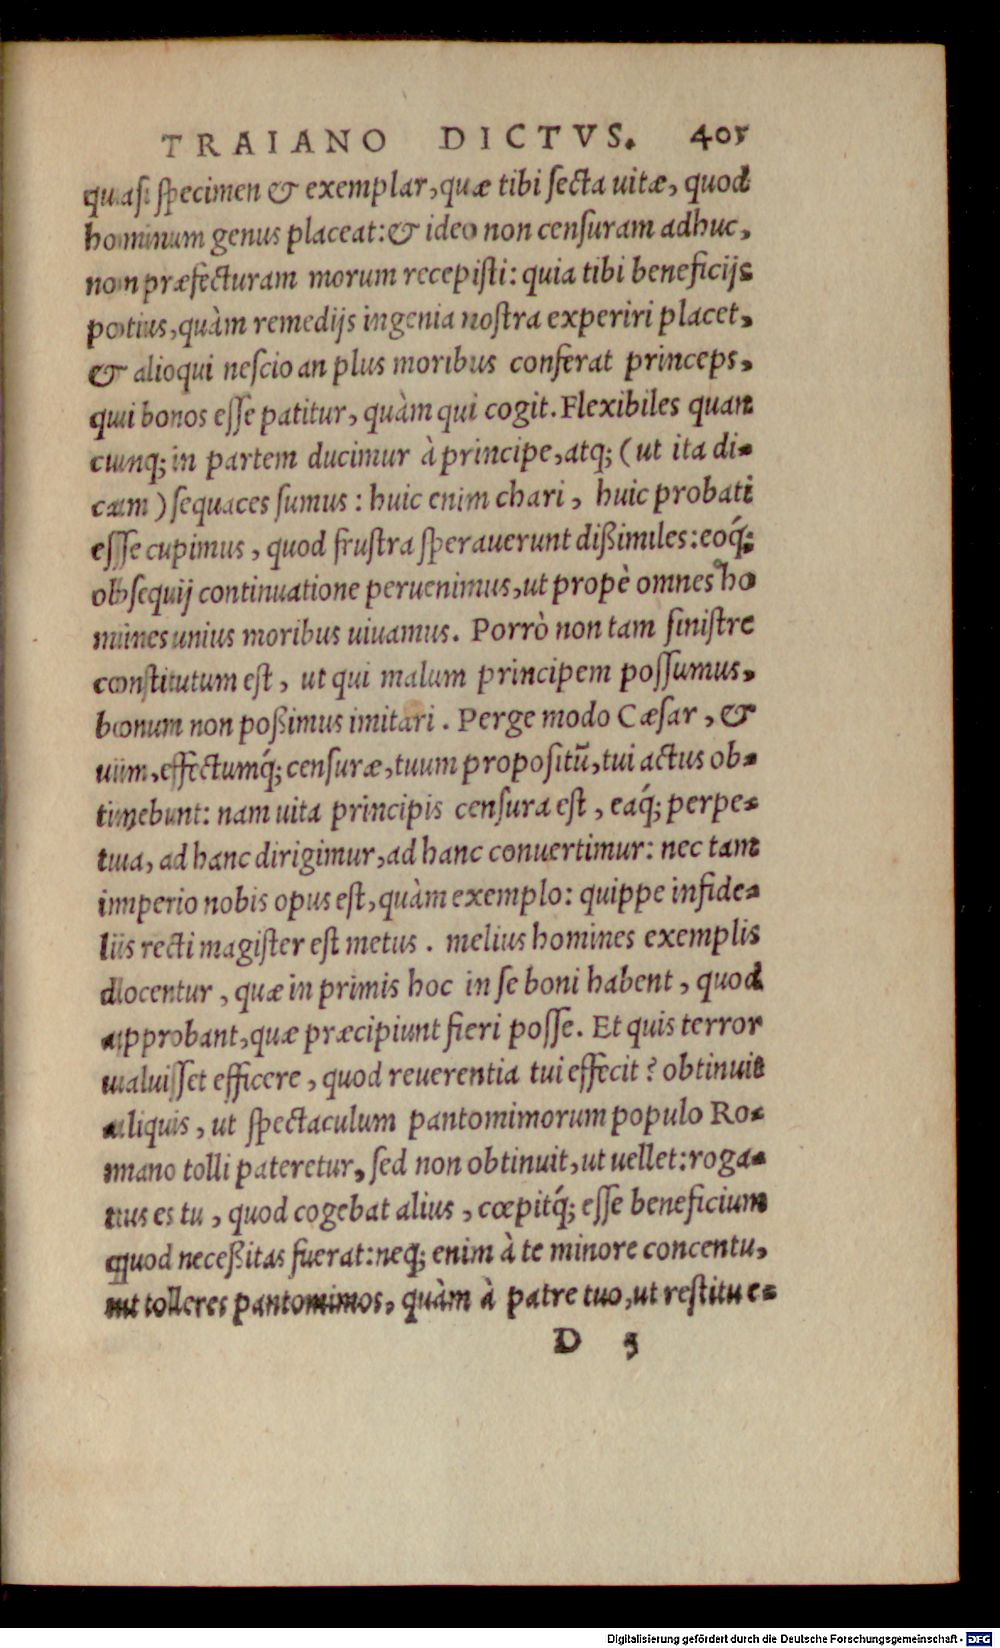 TRAIANO DICTVS. 405
quasi specimen & exemplar, quæ tibi secta uitæ, quod
hominum genus placeat: & ideo non censuram adhuc,
non præfecturam morum recepisti: quia tibi beneficijs
potius, quàm remedijs ingenia nostra experiri placet,
& alioqui nescio an plus moribus conferat princeps,
qui bonos esse patitur, quàm qui cogit. Flexibiles quan
cunq; in partem ducimur à principe, atq; (ut ita di-
cam) sequaces sumus: huic enim chari, huic probati
esse cupimus, quod frustra sperauerunt dißimiles: eoq́;
obsequij continuatione peruenimus, ut propè omnes ho
mines unius moribus uiuamus. Porrò non tam sinistre
constitutum est, ut qui malum principem possumus,
bonum non poßimus imitari. Perge modo Cæsar, &
uim, effectumq́; censuræ, tuum propositũ, tui actus ob-
tinebunt: nam uita principis censura est, eaq́; perpe-
tua, ad hanc dirigimur, ad hanc conuertimur: nec tam
imperio nobis opus est, quàm exemplo: quippe infide-
lis recti magister est metus. melius homines exemplis
docentur, quæ in primis hoc in se boni habent, quod
approbant, quæ præcipiunt fieri posse. Et quis terror
ualuisset efficere, quod reuerentia tui effecit? obtinuit
aliquis, ut spectaculum pantomimorum populo Ro-
mano tolli pateretur, sed non obtinuit, ut uellet: roga-
tus es tu, quod cogebat alius, cœpitq́; esse beneficium
quod neceßitas fuerat: neq; enim à te minore concentu,
ut tolleres pantomimos, quàm à patre tuo, ut restitue-
D 5
Digitalisierung gefördert durch die Deutsche Forschungsgemeinschaft - DFG